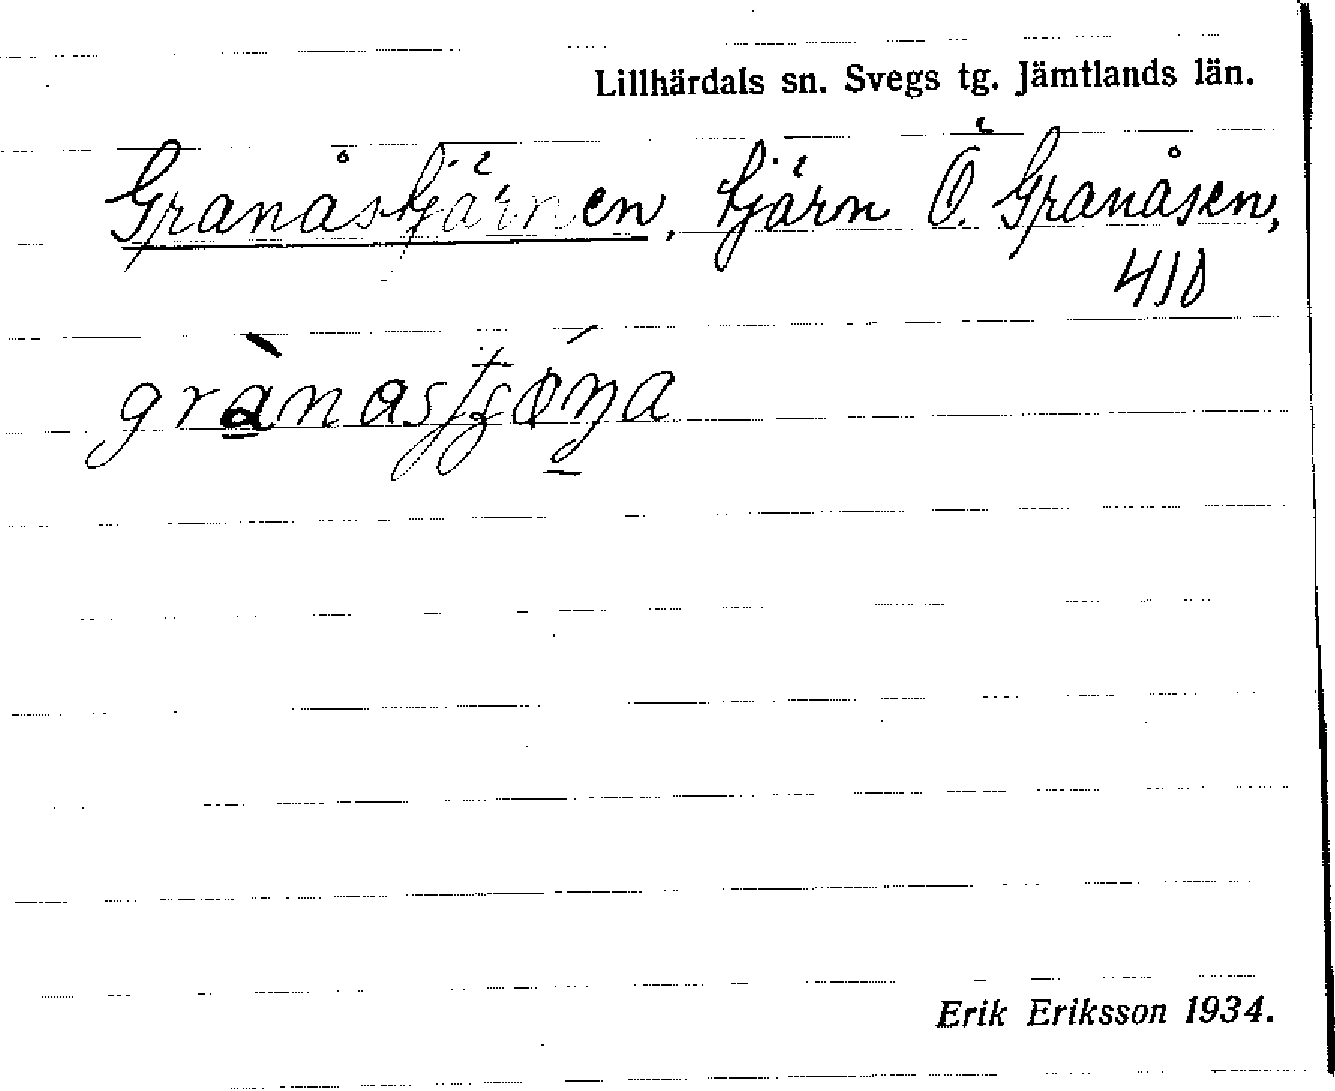 Lillhärdals sn. Svegs tg. Jämtlands län.
Granåstjärnen, tjärn Ö. Granåsen,
410
Erik Eriksson 1934.